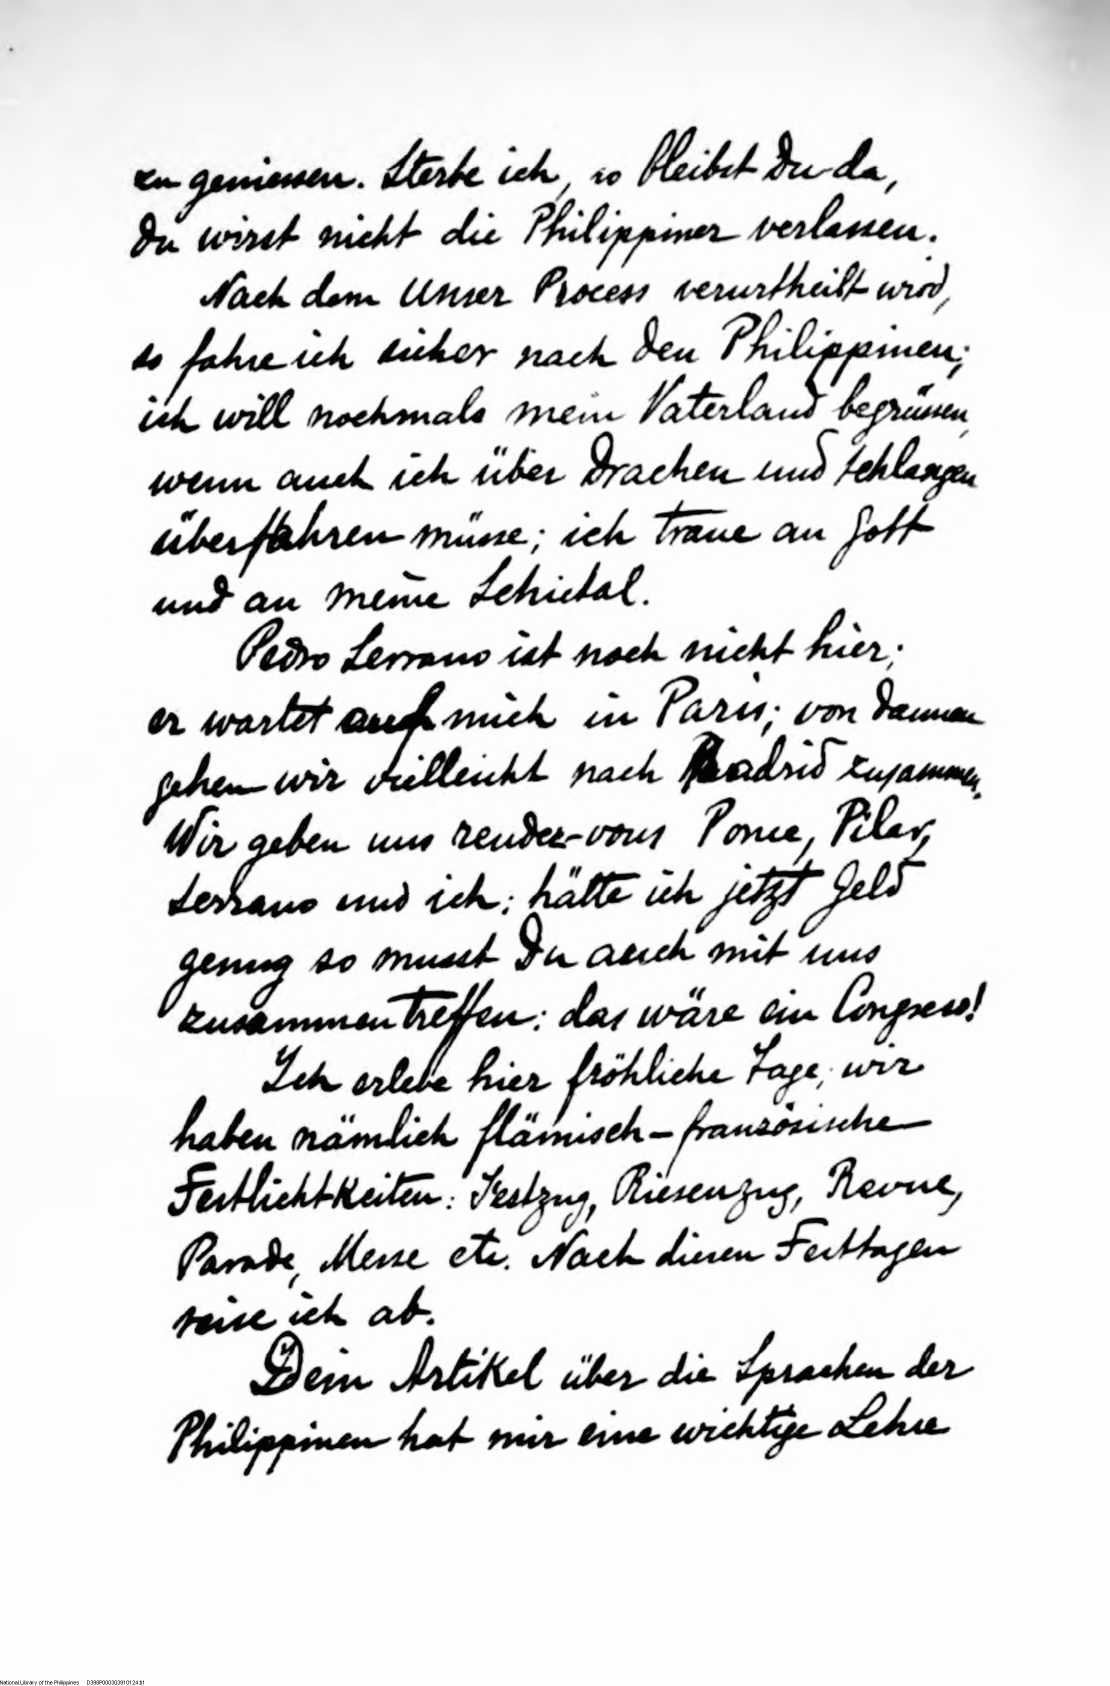 zu geniessen. Sterbe ich, so bleibst Du da,
du wirst nicht die Philippiner verlassen.
Nach dem Unser Process verurtheilt wird,
so fahre ich sicher nach den Philippinen;
ich will nochmals mein Vaterland begrüssen,
wenn auch ich über Drachen und Schlangen
überfahren müsse; ich traue an Gott
und an meine Schicksal.
Pedro Serrano ist noch nicht hier;
er wartet auf mich in Paris; von dannen
gehen wir vielleicht nach Madrid zusammen.
Wir geben uns rendez-vous Ponce, Pilar,
Serrano und ich; hätte ich jetzt Geld
genug so musst Du auch mit uns
zusammentreffen: das wäre ein Congress!
Ich erlebe hier fröhliche Tage; wir
haben nämlich flämisch-französische
Festlichtkeiten: Festzug, Riesenzug, Revue,
Parade, Messe etc. Nach diesen Festtagen
reise ich ab.
Dein Artikel über die Sprachen der
Philippinen hat mir eine wichtige Lehre
National Library of the Philippines